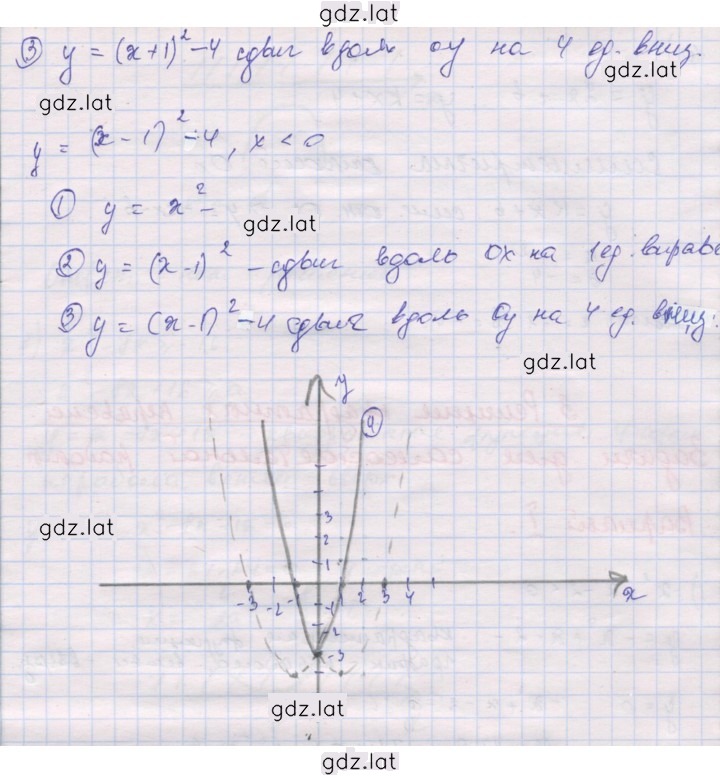 gdz.lat
③ y = (x+1)² - 4 сдвиг вдоль оу на 4 ед. вниз.
gdz.lat
gdz.lat
y = (x - 1)² - 4, x < 0
① y = x² -
gdz.lat
② y = (x-1)² - сдвиг вдоль Ох на 1 ед. вправо
③ y = (x-1)² - 4 сдвиг вдоль Оу на 4 ед. вниз.
gdz.lat
y
9
3
gdz.lat
2
1
-3 -2 -1 1 2 3 4
x
-1
-2
-3
gdz.lat
gdz.lat